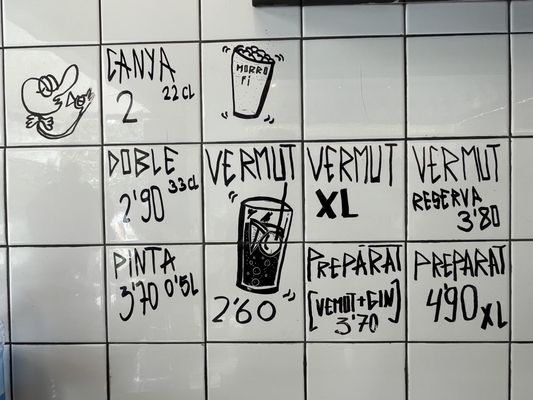 CANYA
2 22cl
MORRO
FI
DOBLE
2'90 33cl
VERMUT
2'60
VERMUT
XL
VERMUT
RESERVA
3'80
PINTA
3'70 0'5L
PREPARAT
[VEMUT+GIN]
3'70
PREPARAT
4'90 XL